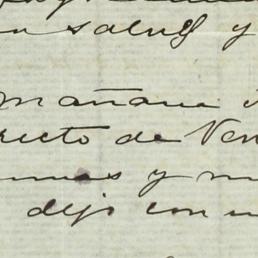 n salud y
mañana
recto de Ven
mas y m
dejo con